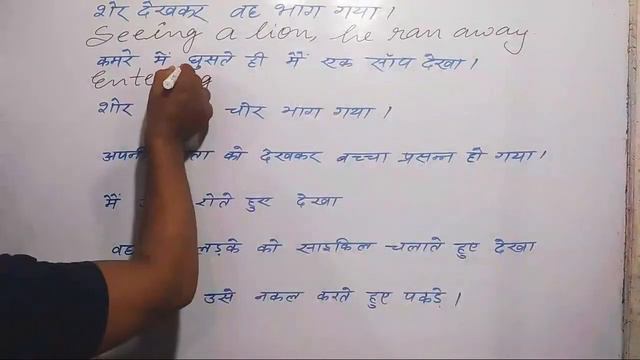 शेर देखकर वह भाग गया।
Seeing a lion, he ran away
कमरे में घुसते ही मैं एक साँप देखा।
शोर चोर भाग गया।
को देखकर बच्चा प्रसन्न हो गया।
मैं रोते हुए देखा
वह लड़के को साइकिल चलाते हुए देखा
उसे नकल करते हुए पकड़े।